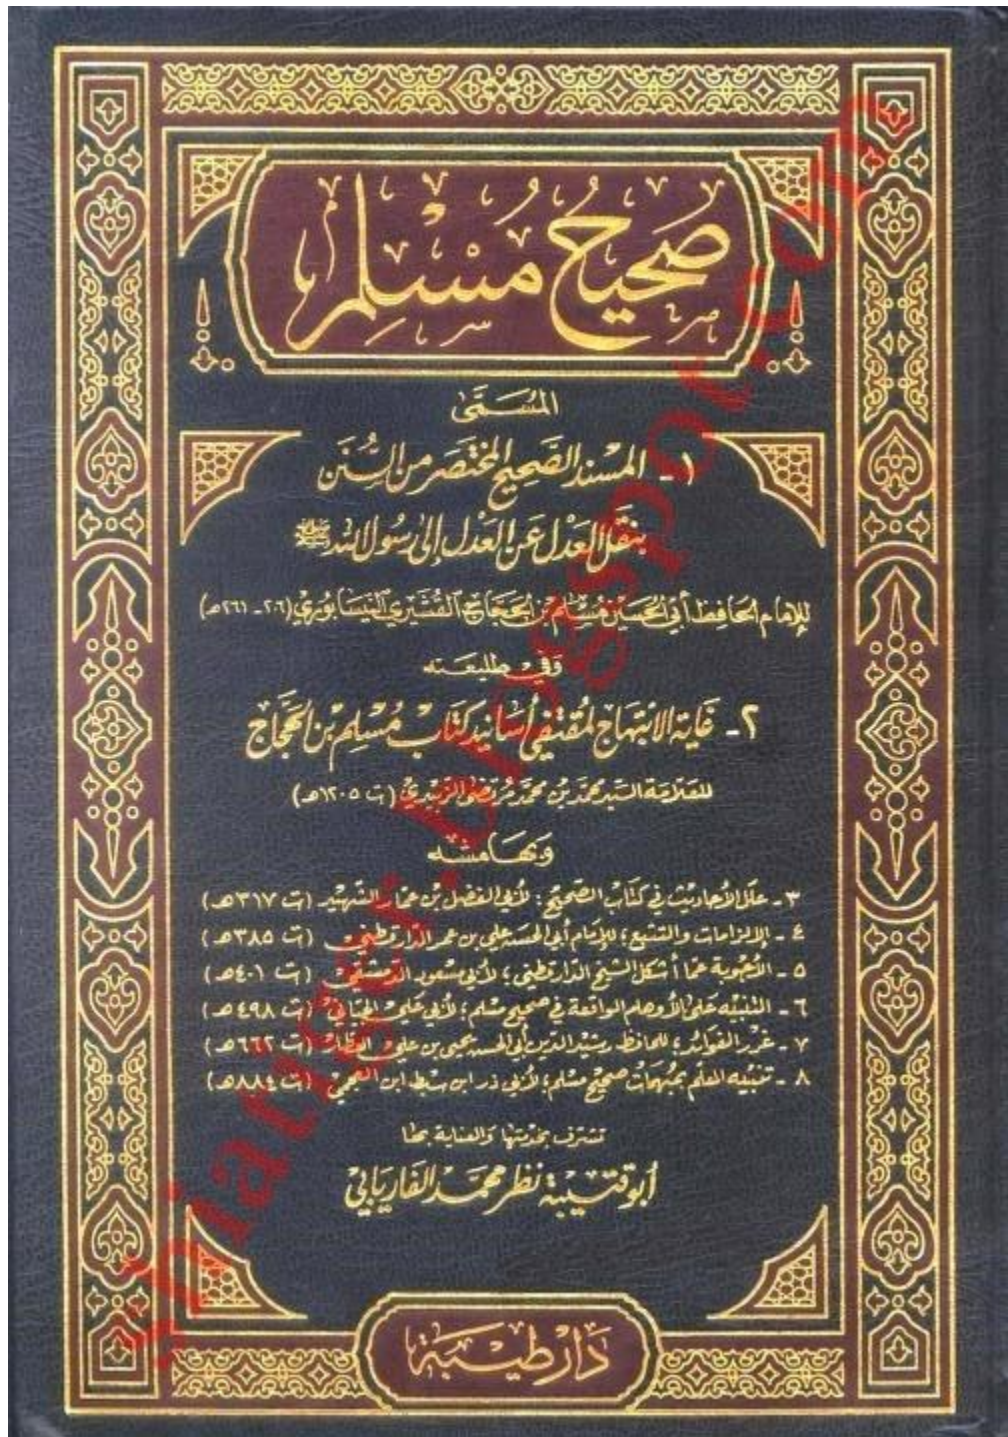 صَحِيحُ مُسْلِم
المُسَمَّى
١- المُسْنَد الصَّحِيح المُخْتَصَر مِن السُّنَن
بنَقل العَدْل عَن العَدْل إلى رسُول الله ﷺ
للإمام الحَافِظ أبي الحُسَين مُسْلِم بن الحَجّاج القُشَيري النَيسَابوري (٢٠٦ - ٢٦١هـ)
وفي طليعته
٢- غَاية الابتهاج لمُقتَفي أسَانيد كتَاب مُسْلِم بن الحَجَّاج
للعَلّامة السَّيِّد محمَّد بن محمَّد مُرتضى الزَّبيدي (ت ١٢٠٥هـ)
وَبهَامشه
٣ - علل الأحاديث في كتاب الصحيح؛ لأبي الفضل بن عمار الشهيد (ت ٣١٧هـ)
٤ - الإلزامات والتتبع؛ للإمام أبي الحسن علي بن عمر الدارقطني (ت ٣٨٥هـ)
٥ - الأجوبة عما أشكل الشيخ الدارقطني؛ لأبي مسعود الدمشقي (ت ٤٠١هـ)
٦ - التنبيه على الأوهام الواقعة في صحيح مسلم؛ لأبي علي الجياني (ت ٤٩٨هـ)
٧ - غرر الفوائد؛ للحافظ رشيد الدين أبي الحسين يحيى بن علي العطار (ت ٦٦٢هـ)
٨ - تنبيه المعلم بمبهمات صحيح مسلم؛ لأبي ذر ابن سبط ابن العجمي (ت ٨٨٤هـ)
تشرف بخدمتها والعناية بها
أبو قتيبة نظر محمد الفاريابي
دَار طَيبَة